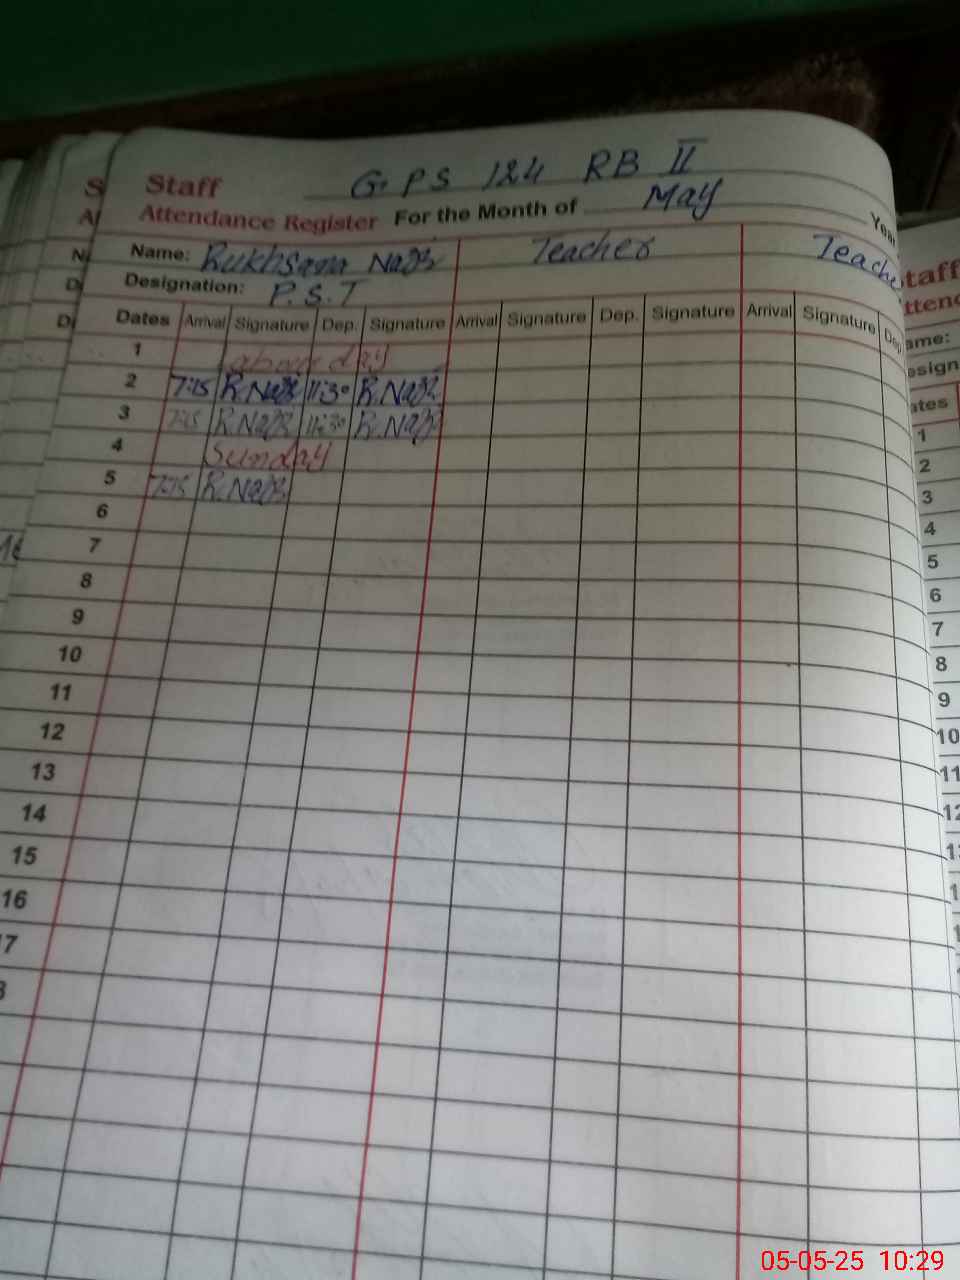 Staff G. P S 124 RB II
Attendance Register For the Month of May Year
Name: Rukhsana Nazir Teacher Teache
Designation: P.S.T
Dates Arrival Signature Dep. Signature Arrival Signature Dep. Signature Arrival Signature Dep
1
2 7:15 R.Nazir 11:30 R.Nazir
3 7:15 R.Nazir 11:30 R.Nazir
4 Sunday
5 7:15 R.Nazir
6
7
8
9
10
11
12
13
14
15
16
17
taff
ttend
ame:
esign
ates
1
2
3
4
5
6
7
8
9
10
11
12
05-05-25 10:29